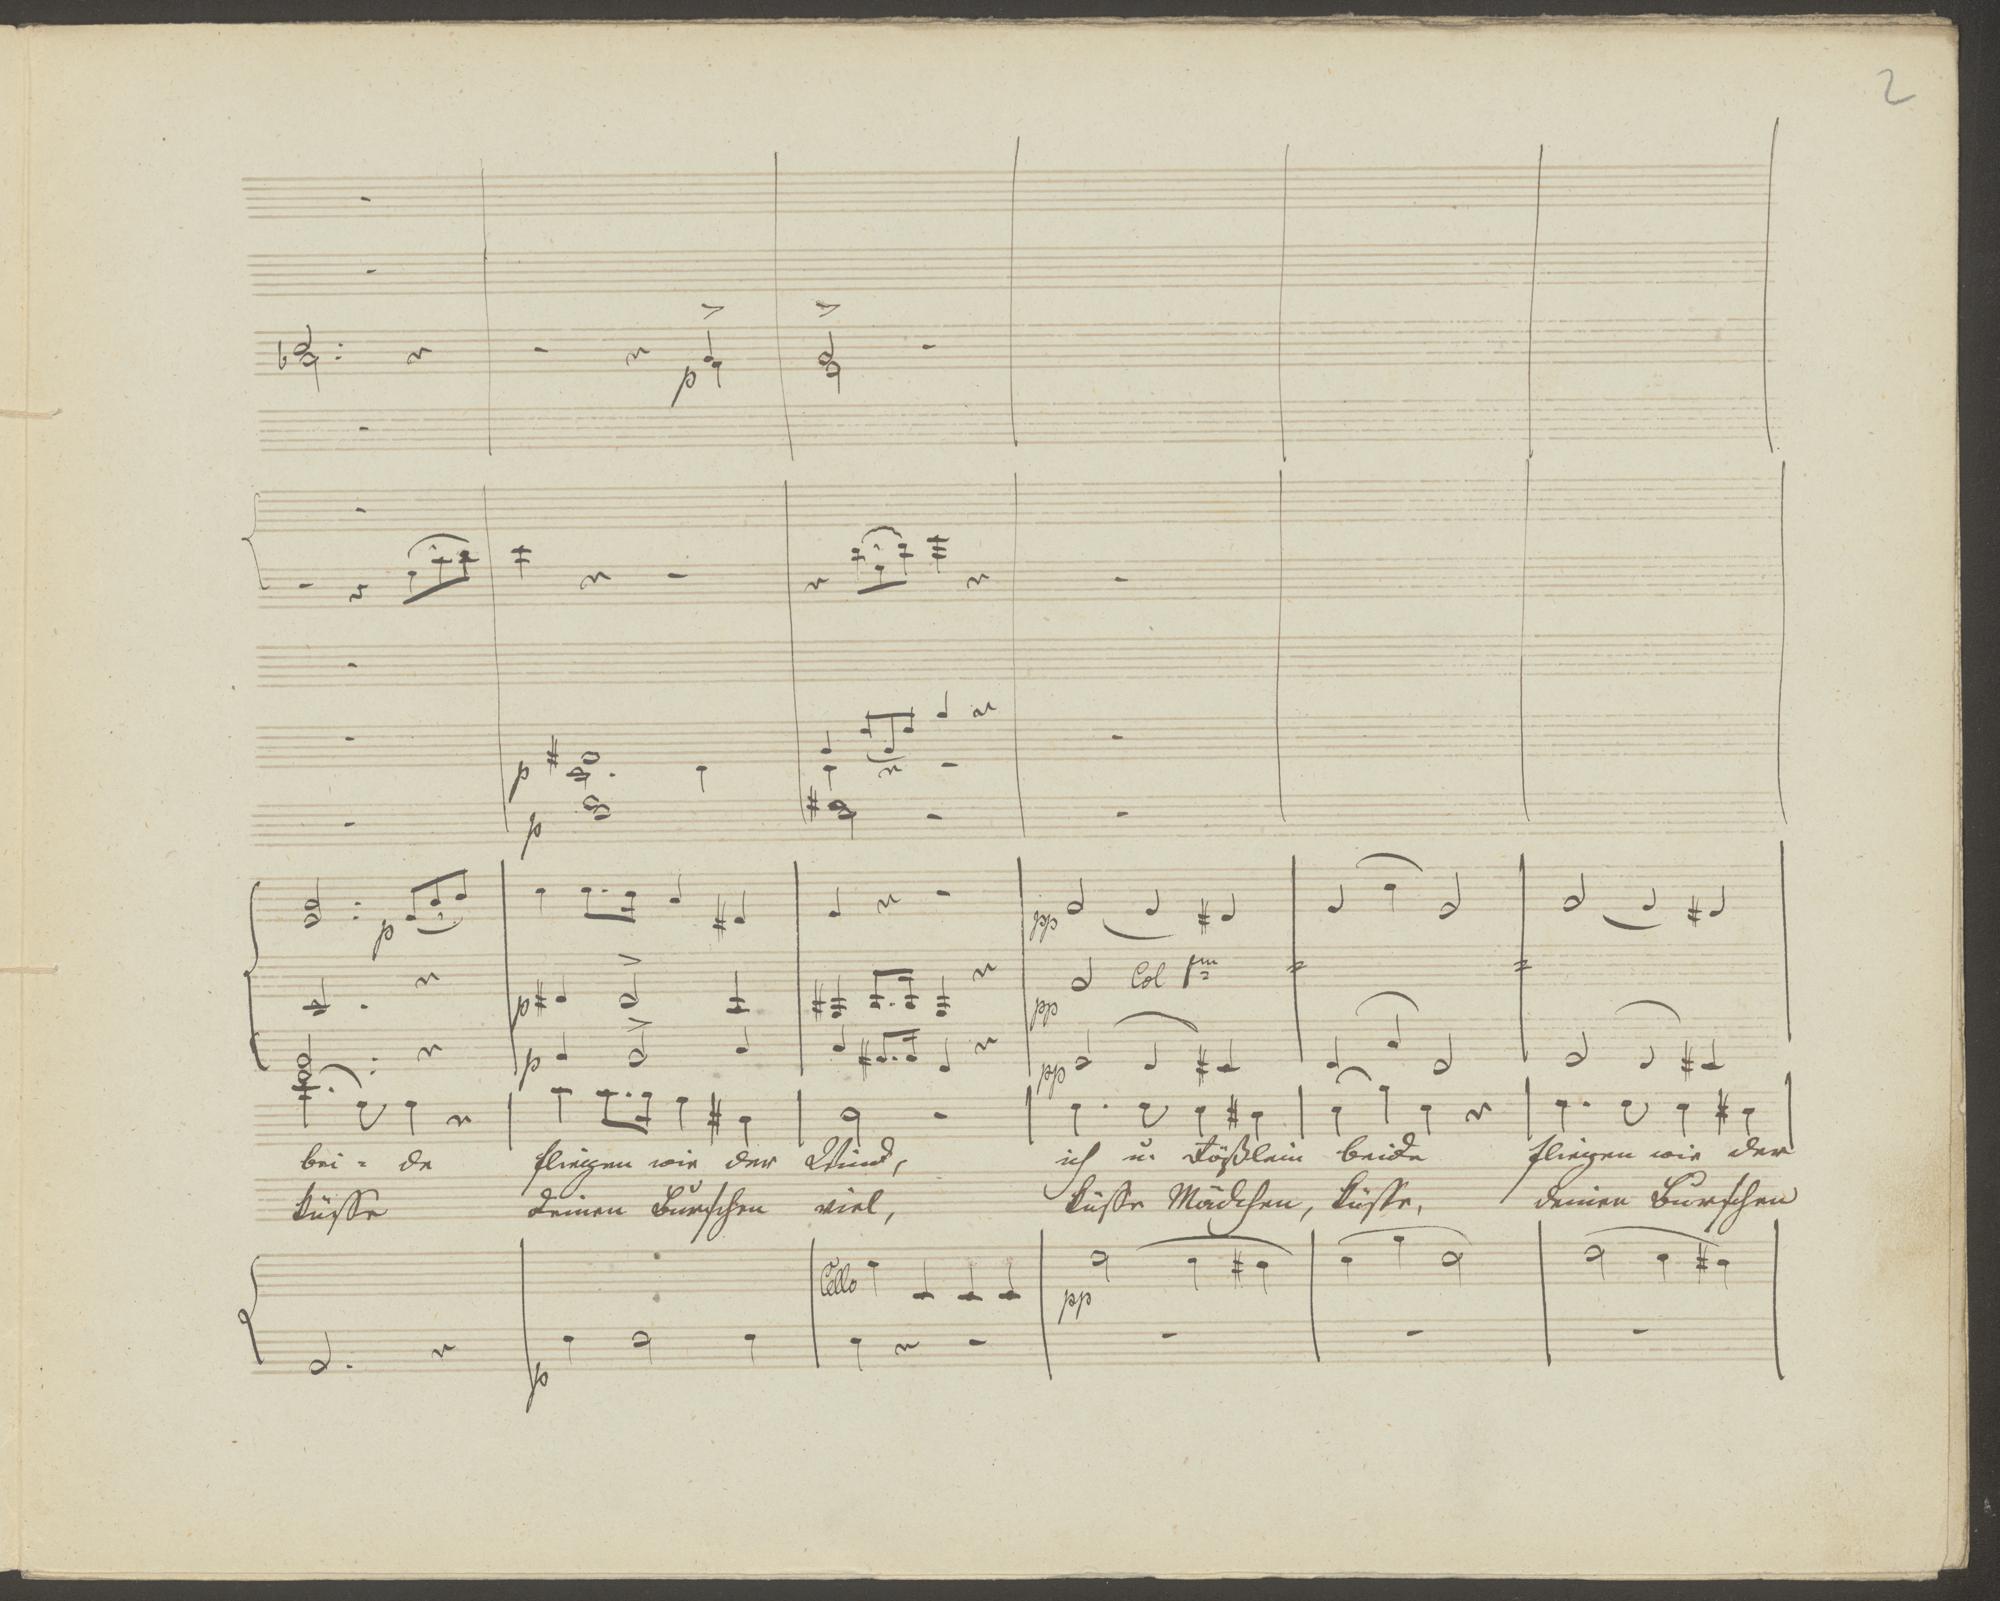 2
p
p
p
p
p
p
pp
Col 1^m
pp
p
pp
bei = de fliegen wie der Wind, ich u. Rößlein beide fliegen wie der
küsse deinen Burschen viel, küsse Mädchen, küsse, deinen Burschen
Cello
pp
p